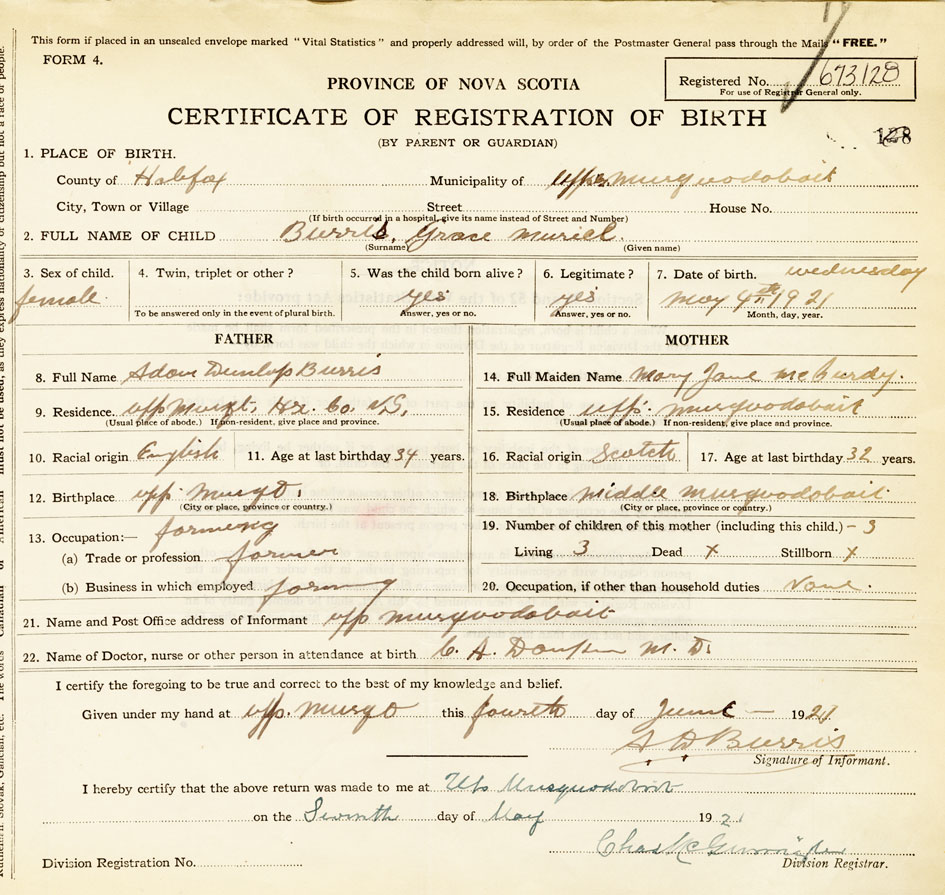 This form if placed in an unsealed envelope marked "Vital Statistics" and properly addressed will, by order of the Postmaster General pass through the Mails "FREE."
FORM 4.
Registered No. 673128
For use of Registrar General only.
PROVINCE OF NOVA SCOTIA
CERTIFICATE OF REGISTRATION OF BIRTH
(BY PARENT OR GUARDIAN)
128
1. PLACE OF BIRTH.
County of Halifax Municipality of Upper Musquodoboit
City, Town or Village Street House No.
(If birth occurred in a hospital, give its name instead of Street and Number)
2. FULL NAME OF CHILD Burris, Grace Muriel.
(Surname) (Given name)
3. Sex of child. 4. Twin, triplet or other? 5. Was the child born alive? 6. Legitimate? 7. Date of birth. Wednesday
female yes yes May 4th 1921
To be answered only in the event of plural birth. Answer, yes or no. Answer, yes or no. Month, day, year.
FATHER MOTHER
8. Full Name Adam Dunlop Burris 14. Full Maiden Name Mary Jane McCurdy.
9. Residence. upp Musqt, Hx. Co. N.S. 15. Residence upp. Musquodoboit
(Usual place of abode.) If non-resident, give place and province. (Usual place of abode.) If non-resident, give place and province.
10. Racial origin English 11. Age at last birthday 34 years. 16. Racial origin Scotch 17. Age at last birthday 32 years.
12. Birthplace upp Musqt. 18. Birthplace Middle Musquodoboit
(City or place, province or country.) (City or place, province or country.)
13. Occupation:— farming 19. Number of children of this mother (including this child.) – 3
(a) Trade or profession farmer Living 3 Dead x Stillborn x
(b) Business in which employed farming 20. Occupation, if other than household duties None.
21. Name and Post Office address of Informant upp Musquodoboit
22. Name of Doctor, nurse or other person in attendance at birth C. A. M. D.
I certify the foregoing to be true and correct to the best of my knowledge and belief.
Given under my hand at upp. Musqt this fourth day of June – 1921
A D Burris
Signature of Informant.
I hereby certify that the above return was made to me at Up Musquodoboit
on the Seventh day of May 1921
Chas K
Division Registration No. Division Registrar.